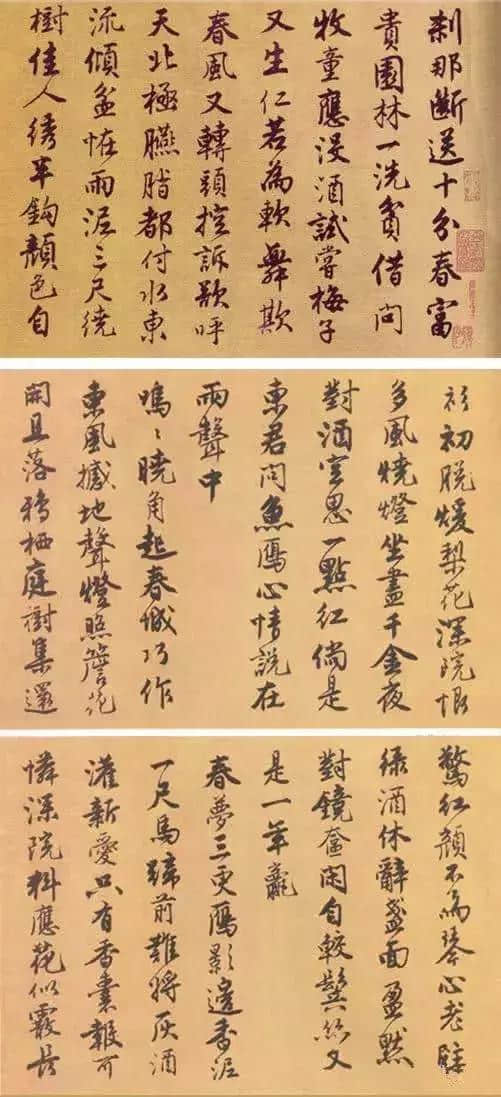 刹那斷送十分春富
貴園林一洗貧借問
牧童應沒酒試嘗梅子
又生仁若為軟舞欺
春風又轉頭控訴歌呼
天北極臙脂都付水東
流傾盆怪雨泥三尺繞
樹佳人綉半鈎顏色自
衫初脫煖梨花深院恨
多風燒燈坐盡千金夜
對酒空思一點紅倘是
東君問魚鴈心情說在
雨聲中
嗚〻曉角起春城巧作
東風撼地聲燈照簷花
開且落鴉栖庭樹集還
驚紅顏不為琴心老
綠酒休辭盞面盈默
對鏡奩閑自較鬢絲又
是一年
春夢三更鴈影邊香泥
一尺馬蹄前難將灰酒
灌新愛只有香囊報可
憐深院料應花似霰長